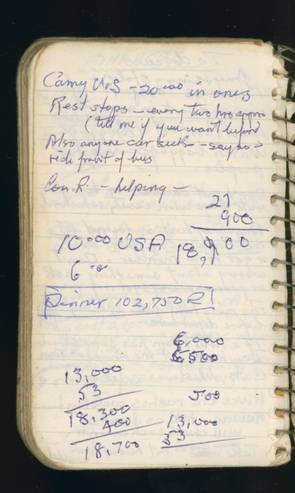 Carry U.S - 20.00 in ones
Rest stops - every two hrs approx
(tell me if you want before
Also anyone car sick - say so &
ride front of bus
Con. R. - helping -
27
900
10.00 USA 18,900
6.00
Dinner 102,750 R
6,000
6500
13,000
53
500
18,300
400
13,000
18,700
53